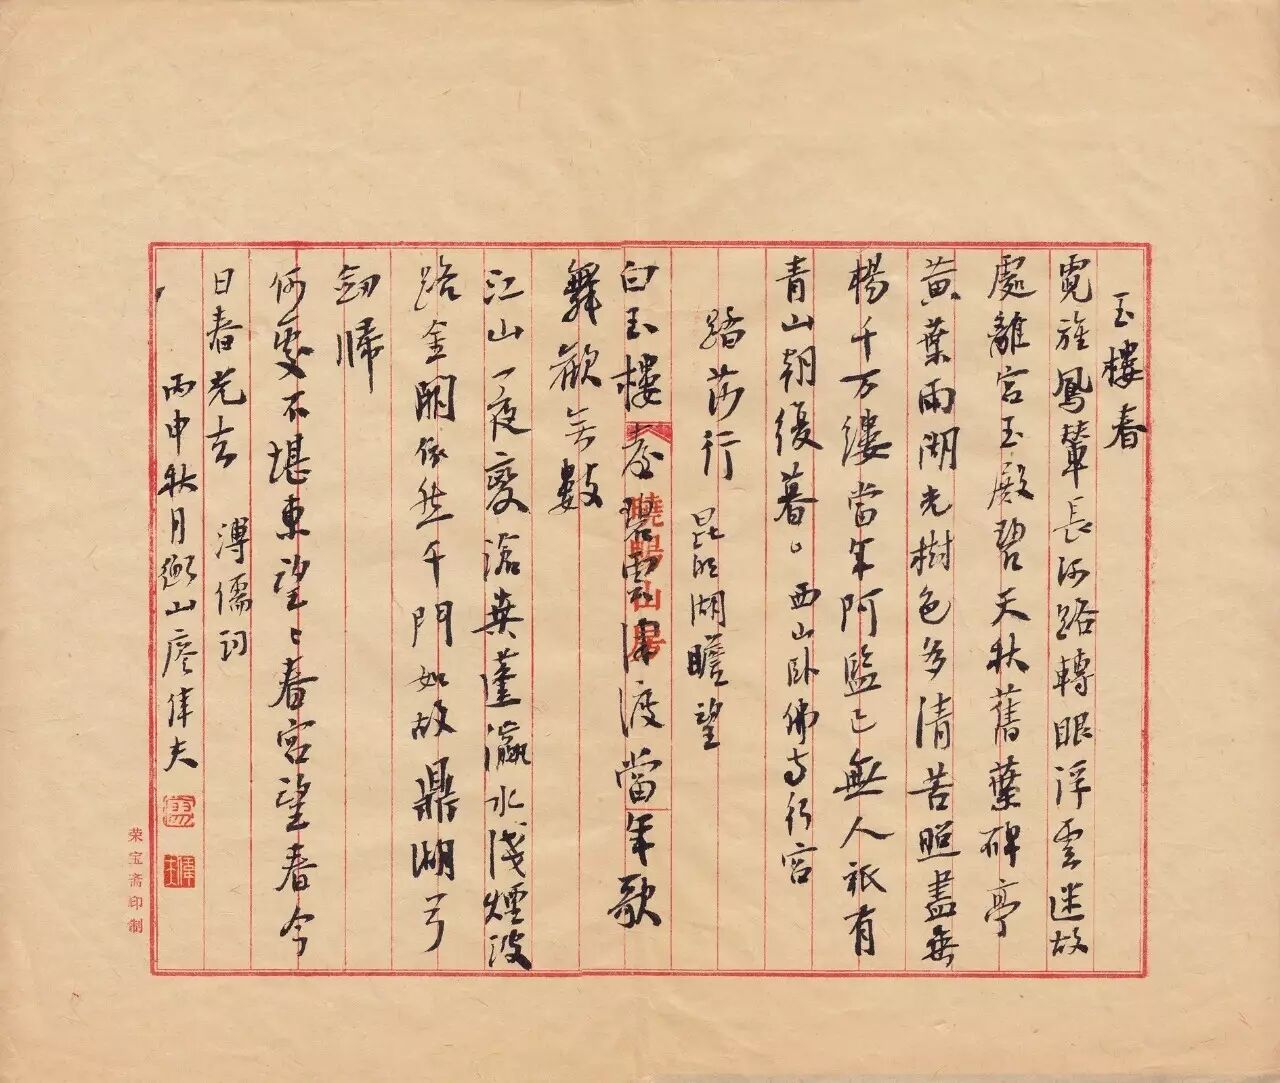 玉樓春
霓旌鳳輦長河路轉眼浮雲迷故
處離宮玉殿碧天秋舊葉碑亭
黃葉雨湖光樹色多清苦照盡垂
楊千万縷當年阿監已無人祇有
青山朝復暮。西山卧佛寺行宮
踏莎行 昆明湖瞻望
白玉樓臺碧雲津渡當年歌
舞歡無數
江山一夜變滄桑蓬瀛水淺煙波
路金闕依然千門如故鼎湖弓
劍歸
何處不堪東望望春宮望春今
日春光去 溥儒詞
丙申秋月山廖偉夫
荣宝斋印制